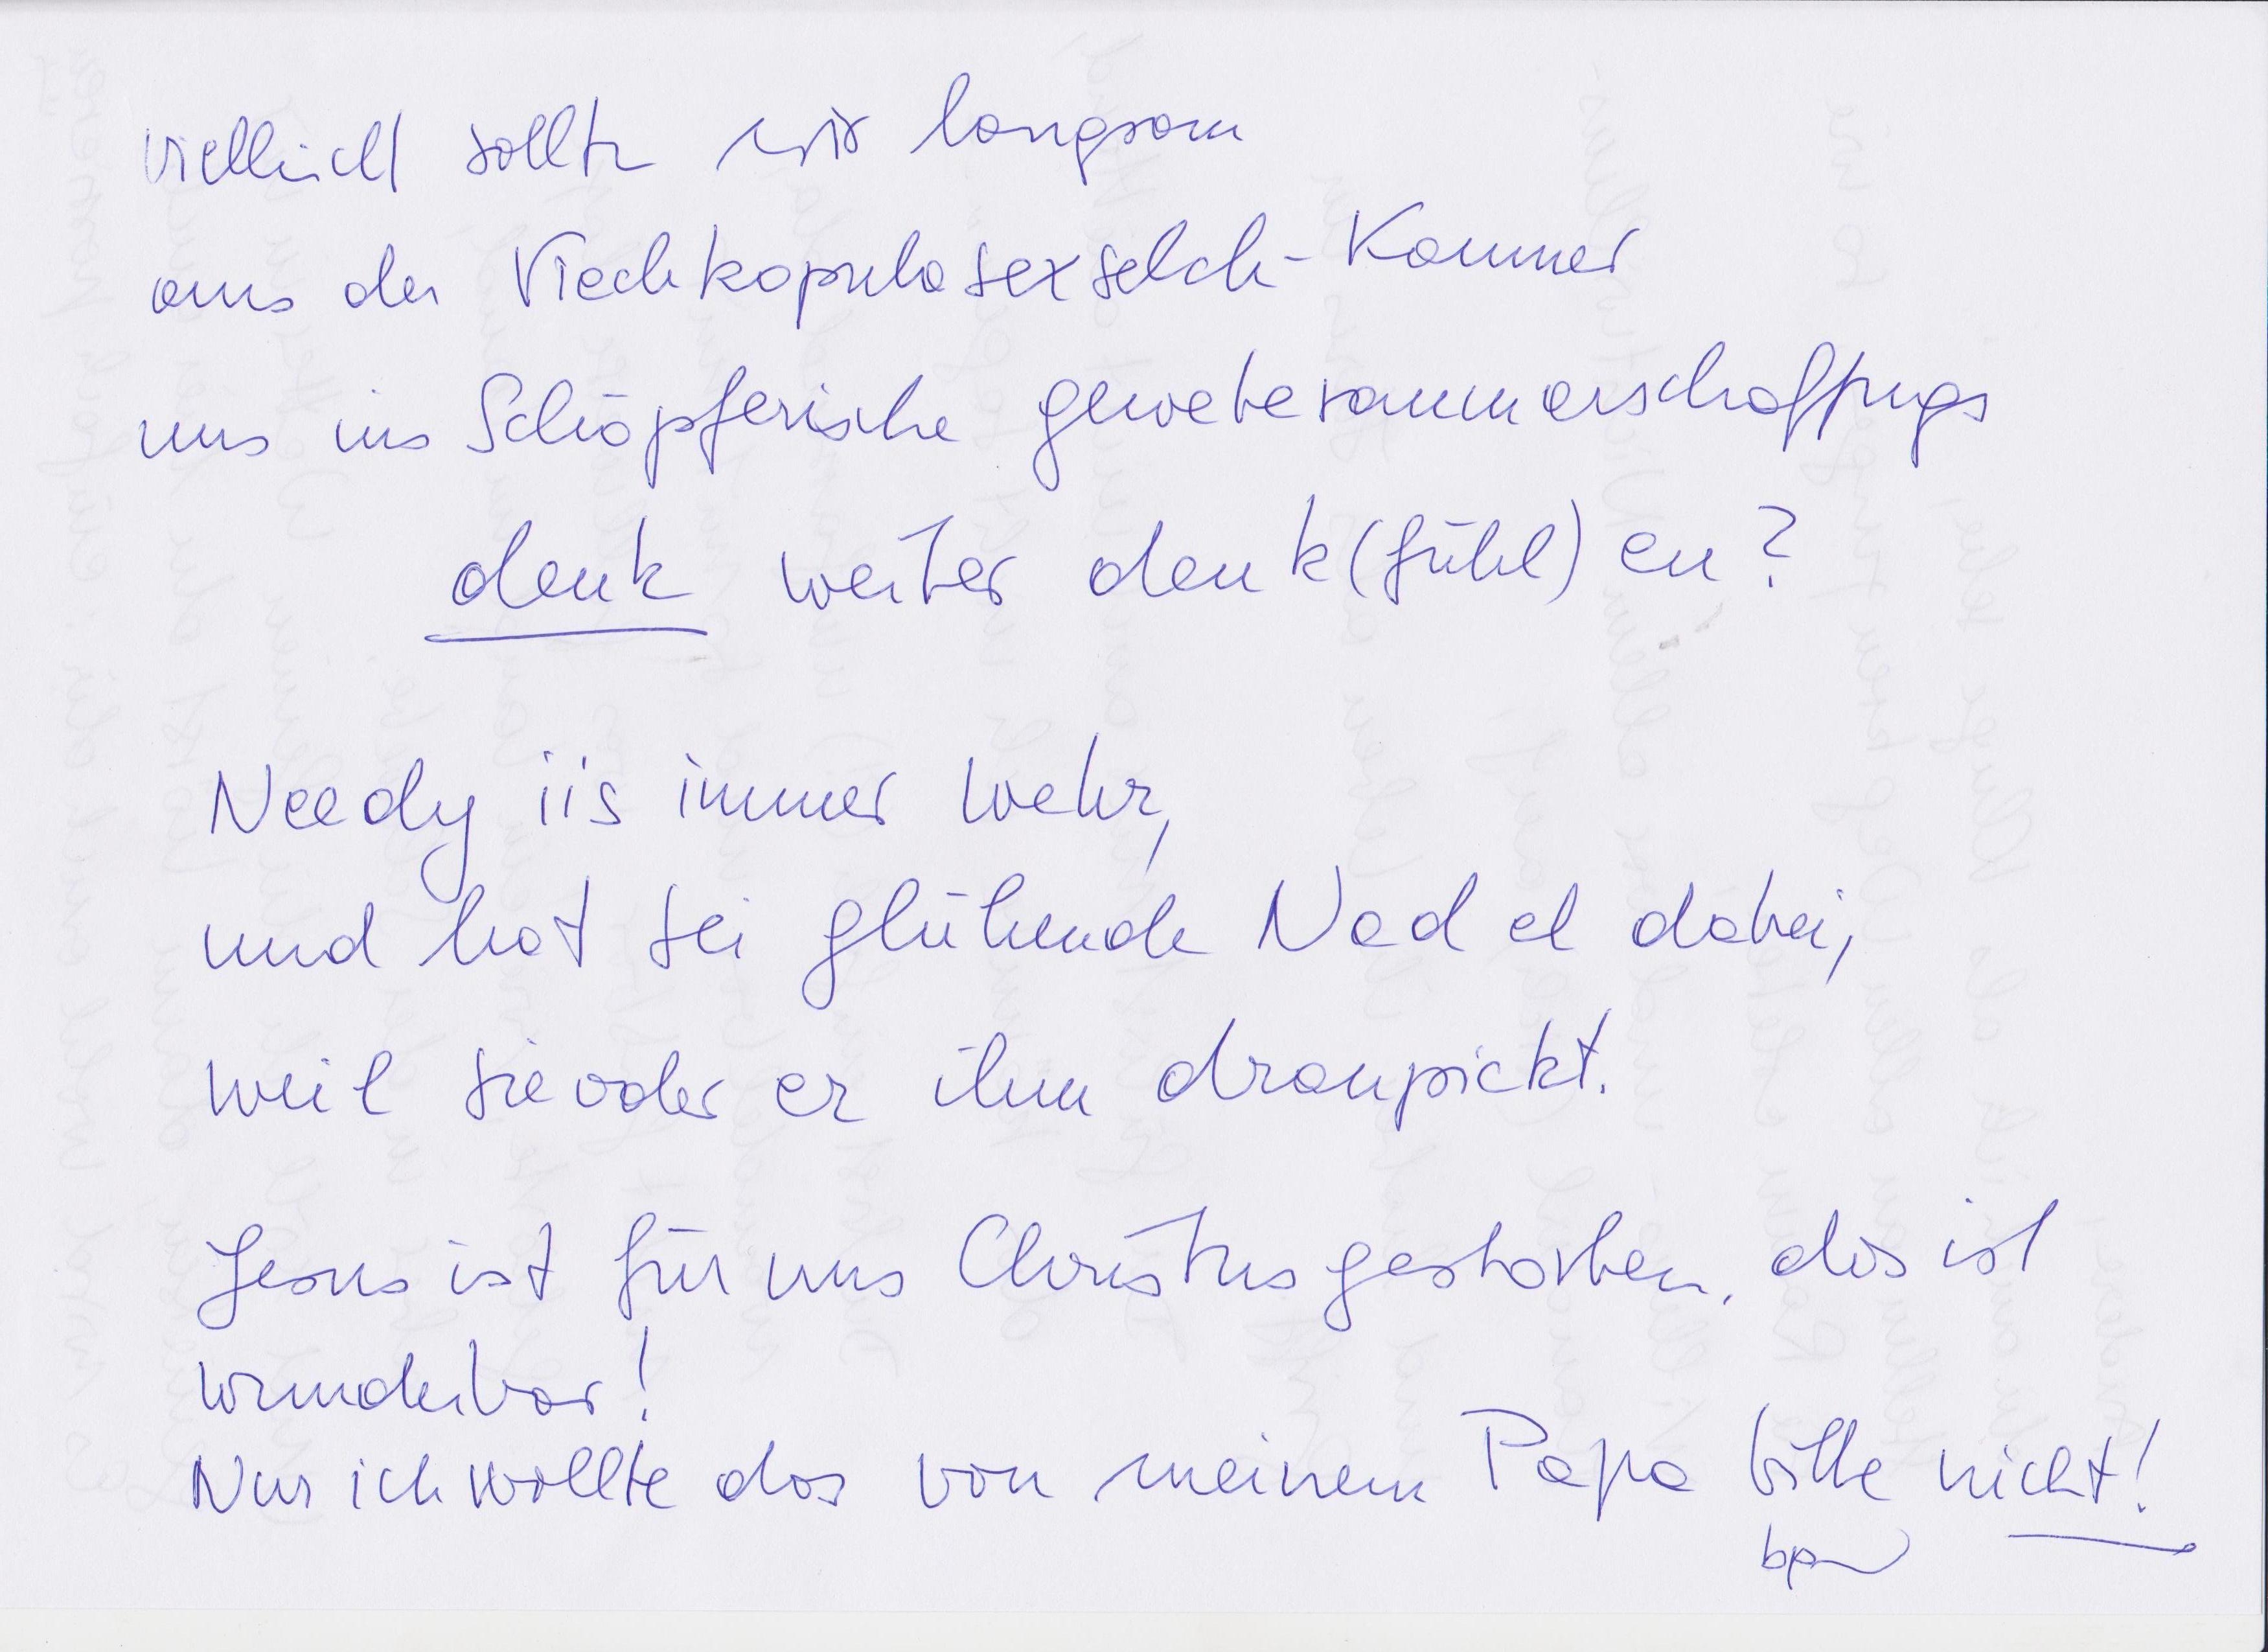 vielleicht sollten wir langsam
aus der Viechkopulasexselch-Kammer
uns ins Schöpferische gewebesammerschaffungs
denk weiter denk(fühl)en?
Needy iis immer wehr,
und hat sei glühende Nadel dabei,
weil sie oder er ihm dranpickt.
Jesus ist für uns Christus gestorben, das ist
wunderbar!
Nur ich wollte das von meinem Papa bitte nicht!